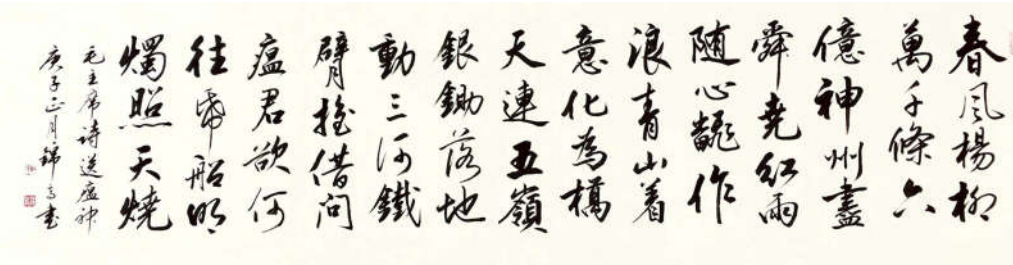 春風楊柳
萬千條六
億神州盡
舜堯紅雨
随心飜作
浪青山着
意化為橋
天連五嶺
銀鋤落地
動三河鐵
臂搖借問
瘟君欲何
往帋船明
燭照天燒
毛主席詩送瘟神
庚子正月錦書